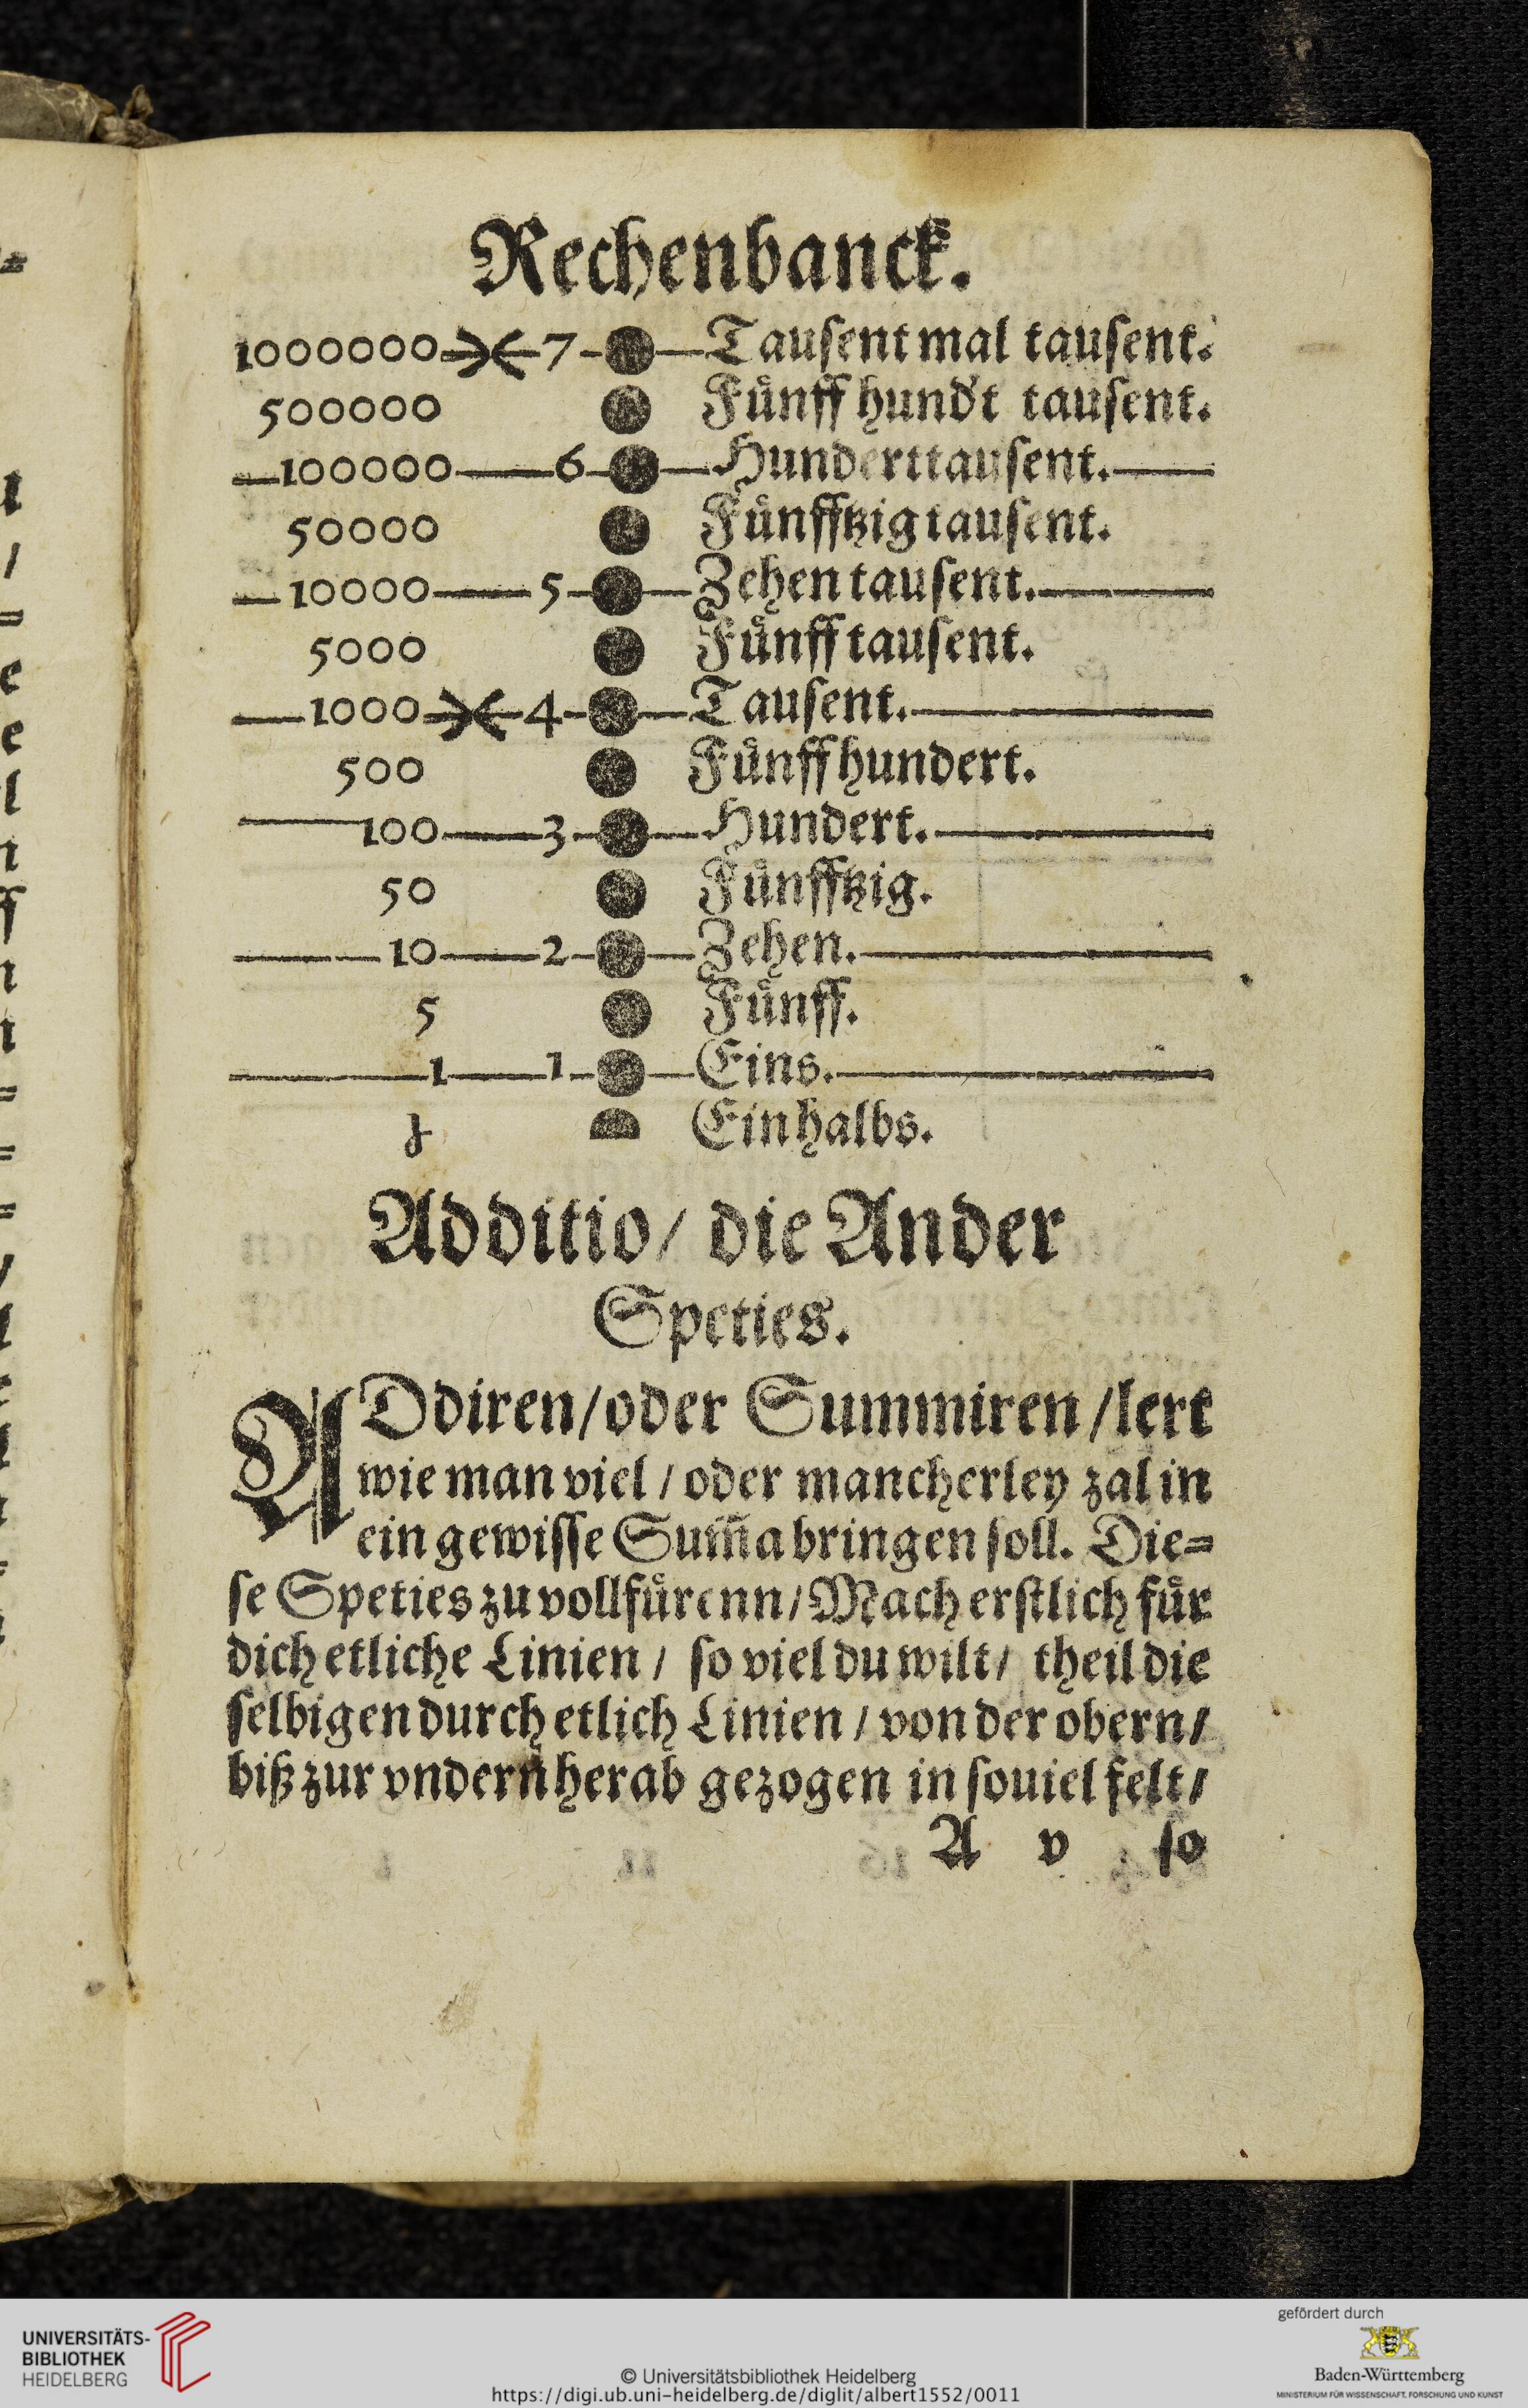 Rechenbanck.
1000000 7 Tausent mal tausent.
500000 Fünff hundt tausent.
100000 6 Hunderttausent.
50000 Fünfftzig tausent.
10000 5 Zehen tausent.
5000 Fünff tausent.
1000 4 Tausent.
500 Fünff hundert.
100 3 Hundert.
50 Fünfftzig.
10 2 Zehen.
5 Fünff.
1 1 Eins.
Ein halbs.
Additio/ die Ander
Speties.
ADdiren/oder Summiren/lert
wie man viel/ oder mancherley zal in
ein gewisse Sum̃a bringen soll. Die=
se Speties zu vollfürenn/ Mach erstlich für
dich etliche Linien/ so viel du wilt/ theil die
selbigen durch etlich Linien/ von der obern/
biß zur vndern herab gezogen in souiel felt/
A v so
UNIVERSITÄTS-
BIBLIOTHEK
HEIDELBERG
© Universitätsbibliothek Heidelberg
https://digi.ub.uni-heidelberg.de/diglit/albert1552/0011
gefördert durch
Baden-Württemberg
MINISTERIUM FÜR WISSENSCHAFT, FORSCHUNG UND KUNST